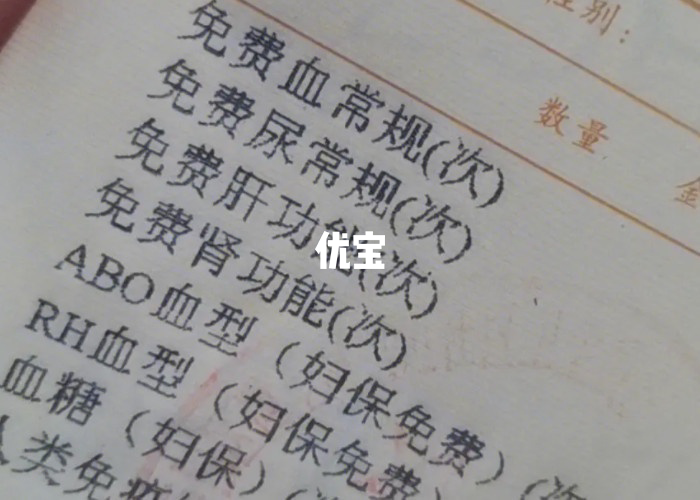 性别：
数量
免费血常规(次)
免费尿常规(次)
免费肝功能(次)
免费肾功能(次)
ABO血型（妇保免费）（次
RH血型（妇保免费）
血糖（妇保）（
人类免疫
优宝